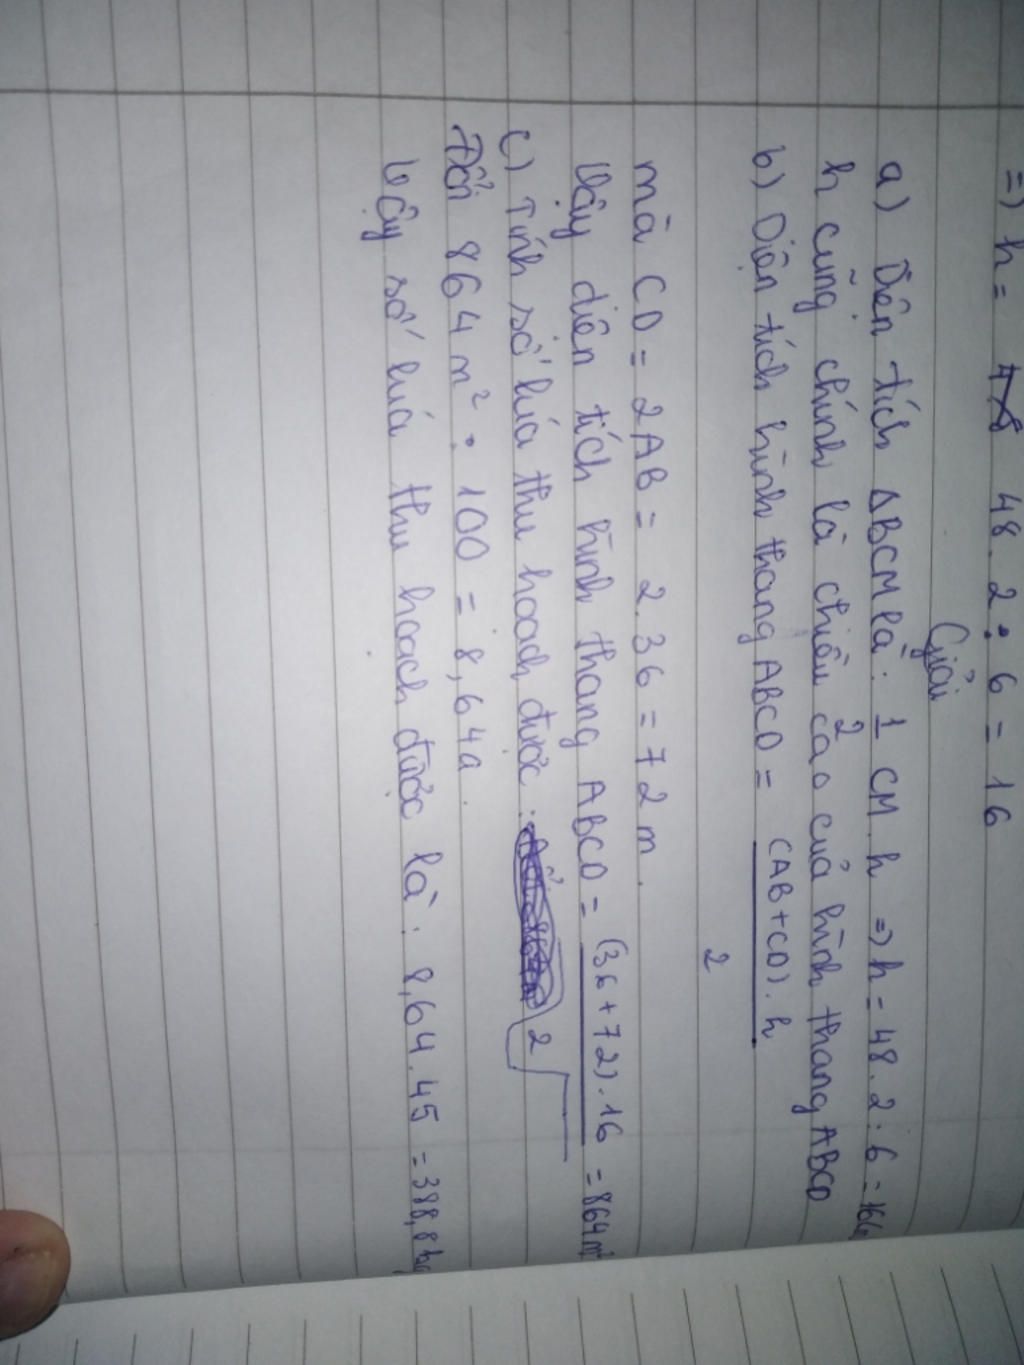 => h = 48 . 2 : 6 = 16
Giải
a) Diện tích ΔBCM là: 1/2 CM . h => h = 48 . 2 : 6 = 16
h cũng chính là chiều cao của hình thang ABCD
b) Diện tích hình thang ABCD = (AB + CD) . h
2
mà CD = 2AB = 2.36 = 72 m.
Vậy diện tích hình thang ABCD = (36 + 72) . 16 = 864 m²
2
c) Tính số lúa thu hoạch được :
Đổi 864 m² : 100 = 8,64a.
Vậy số lúa thu hoạch được là : 8,64 . 45 = 388,8 kg